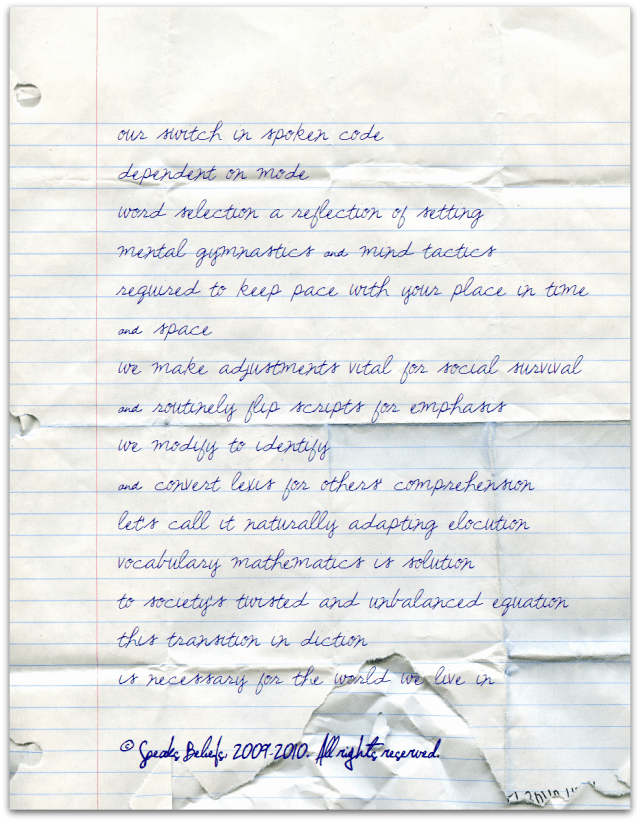 our switch in spoken code
dependent on mode
word selection a reflection of setting
mental gymnastics and mind tactics
required to keep pace with your place in time
and space
we make adjustments vital for social survival
and routinely flip scripts for emphasis
we modify to identify
and convert lexis for others' comprehension
let's call it naturally adapting elocution
vocabulary mathematics is solution
to society's twisted and unbalanced equation
this transition in diction
is necessary for the world we live in
© Speaks Beliefs, 2009-2010. All rights reserved.